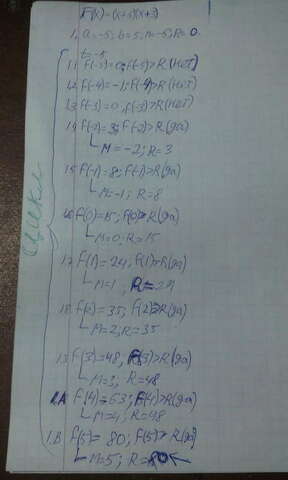 F(x)-(x+5)(x+3)
1. a=-5; b=5; M=-5; R=0
t=-5
11 f(-5)=0; f(-5)>R(нет)
12 f(-4)=-1; f(-4)>R(нет)
13 f(-3)=0; f(-3)>R(нет)
14 f(-2)=3; f(-2)>R(да)
M=-2; R=3
15 f(-1)=8; f(-1)>R(да)
M=-1; R=8
16 f(0)=15; f(0)>R(да)
M=0; R=15
17 f(1)=24; f(1)>R(да)
M=1; R=24
18 f(2)=35; f(2)>R(да)
M=2; R=35
19 f(3)=48; f(3)>R(да)
M=3; R=48
1.A f(4)=63; f(4)>R(да)
M=4; R=48
1.B f(5)=80; f(5)>R(да)
M=5; R=80
цикл